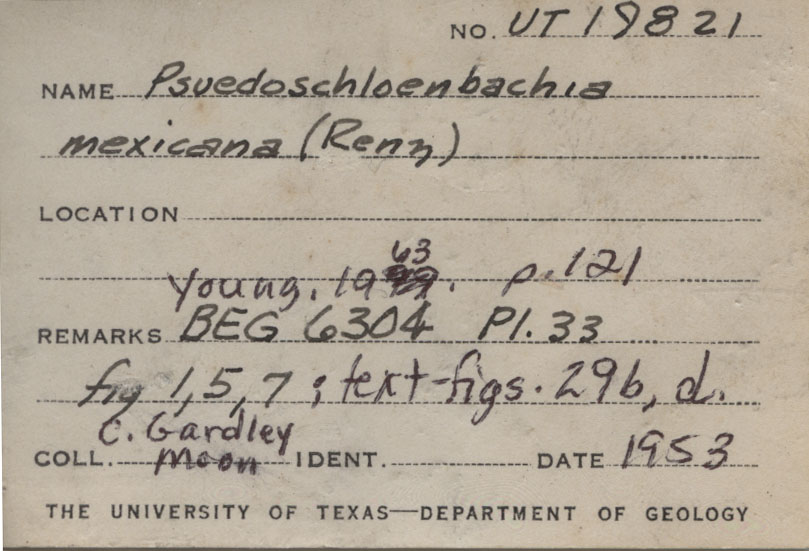 NO. UT 19821
NAME Psuedoschloenbachia
mexicana (Renz)
LOCATION
63
Young. 19 . p. 121
REMARKS BEG 6304 Pl. 33
fig 1,5,7; text-figs. 29b, d.
C. Gardley
COLL. Moon IDENT. DATE 1953
THE UNIVERSITY OF TEXAS—DEPARTMENT OF GEOLOGY